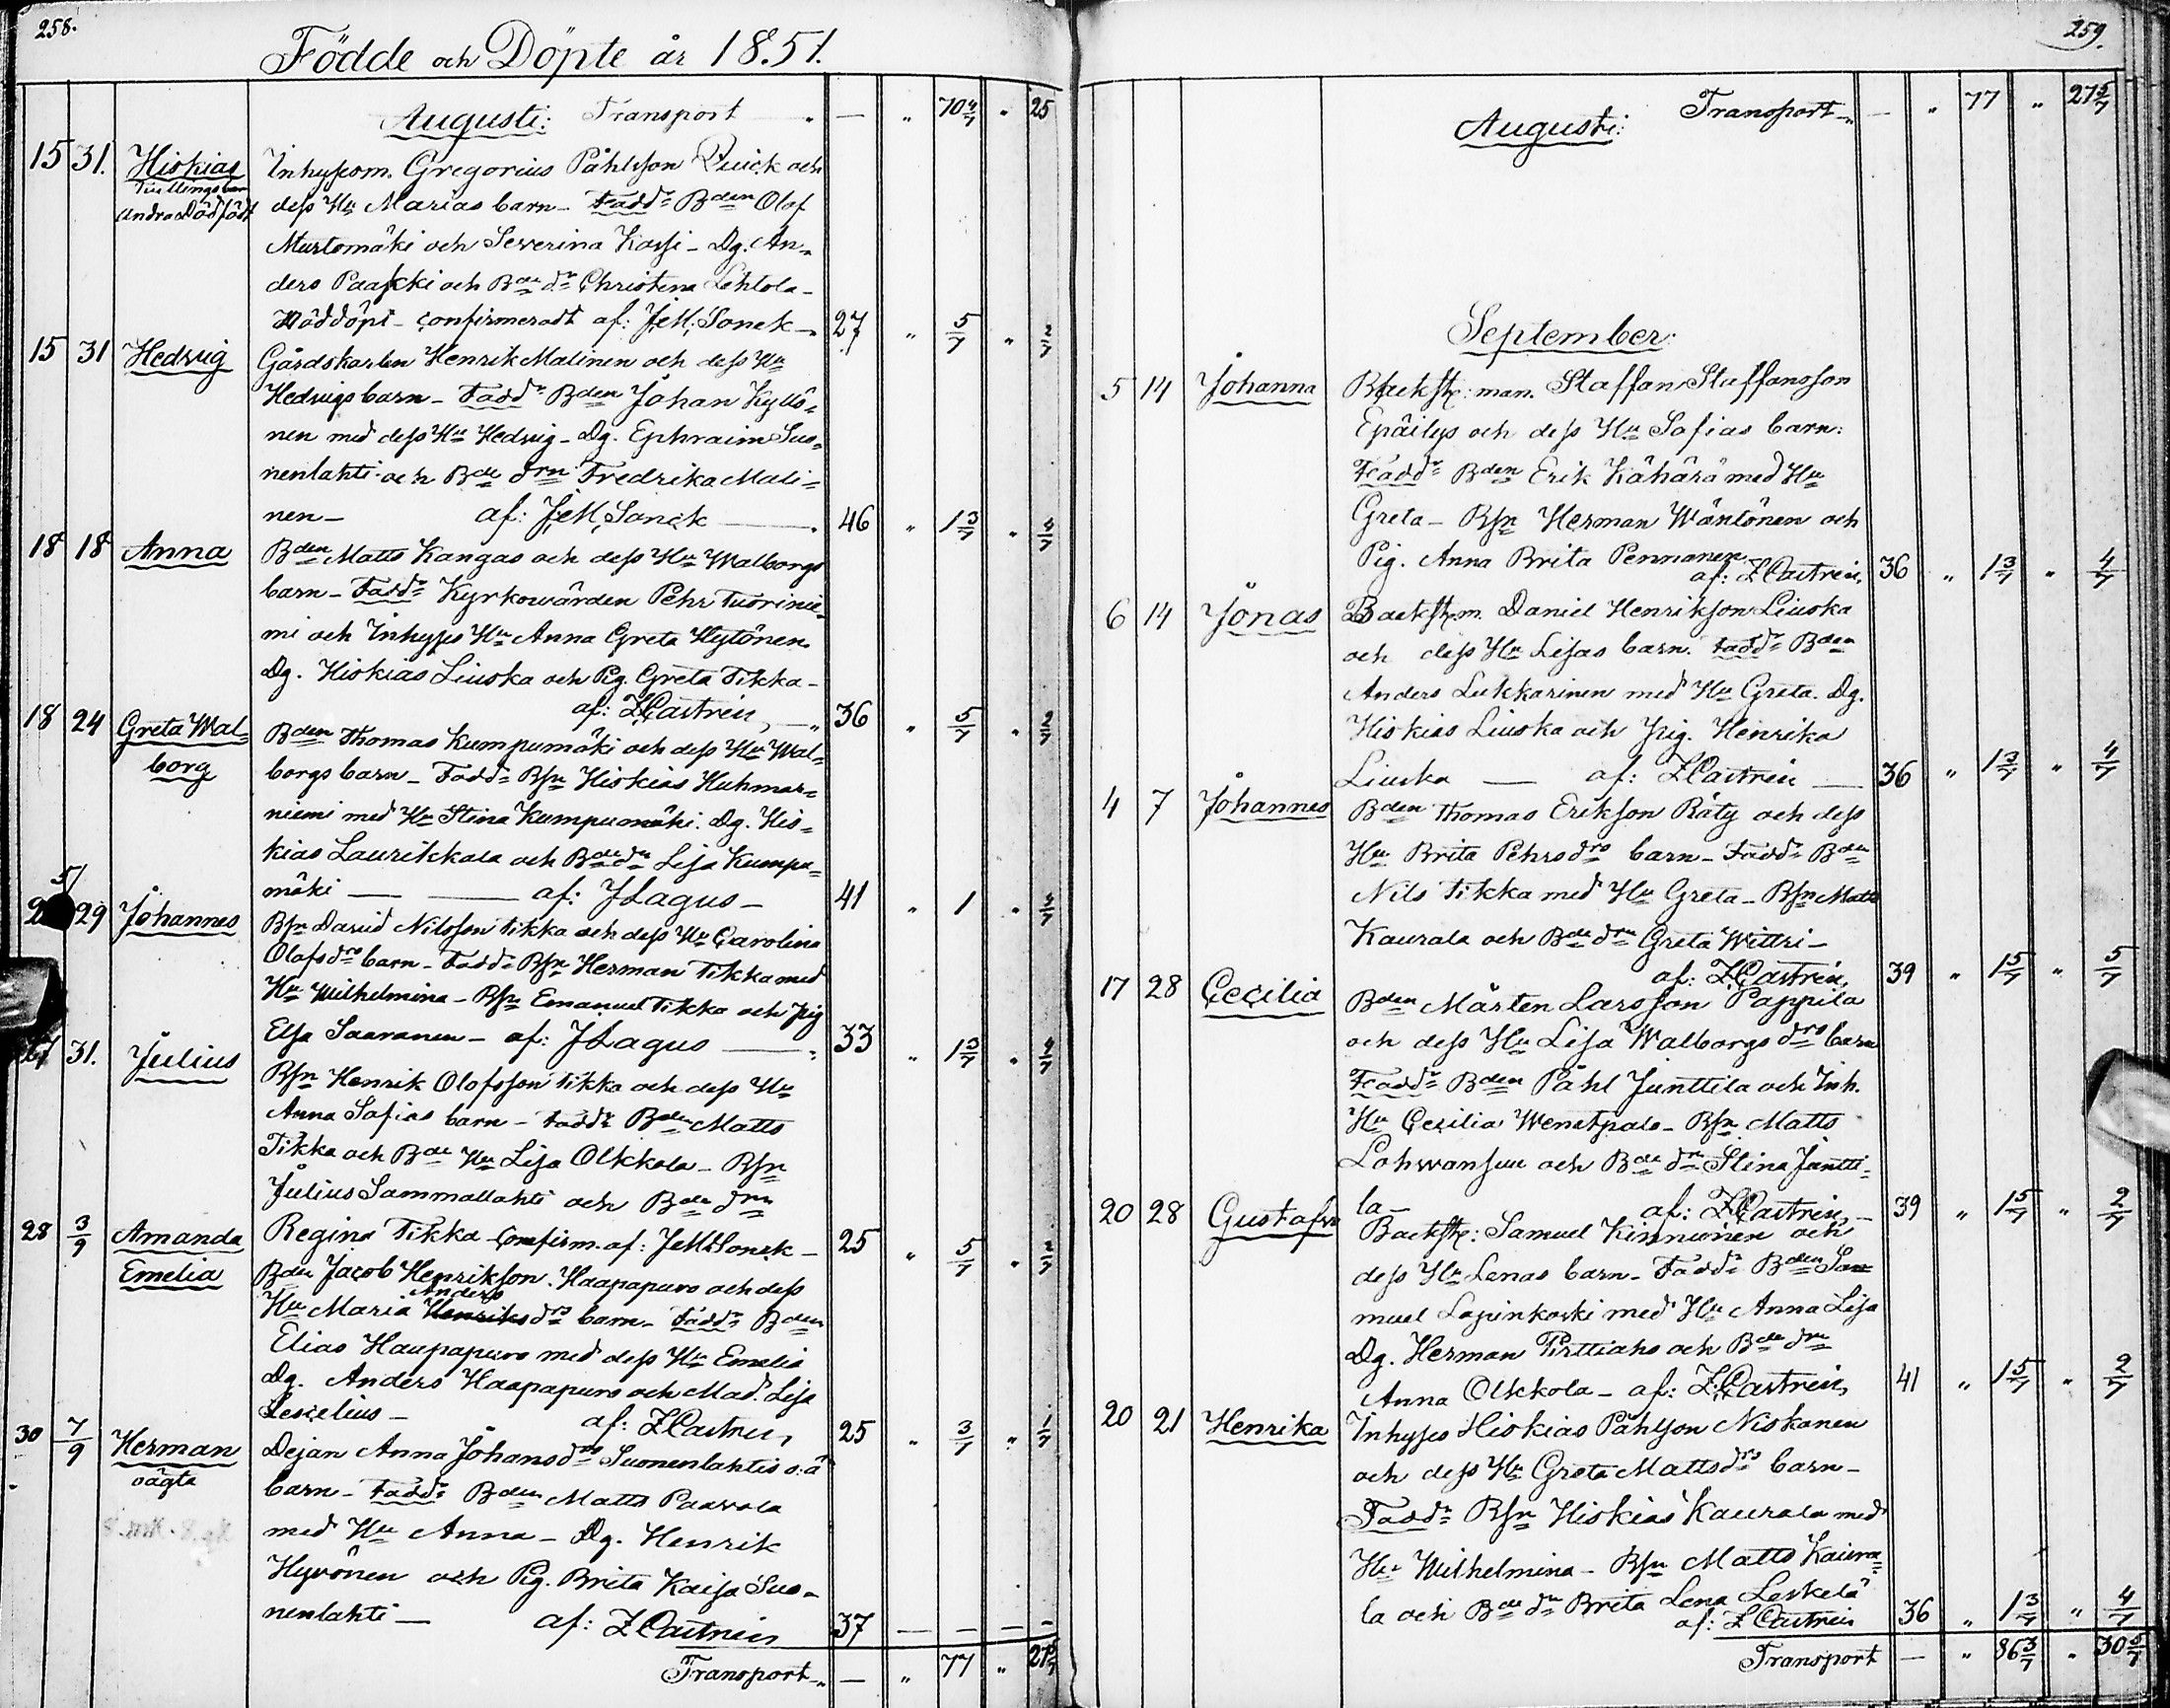 258.
Födde och Döpte år 1851.
Augusti: Transport — „ 70 4/7 „ 25
15 31. Hiskias Inhysesm. Gregorius Påhlsson Quick och
Tvillingsbarn
andra Dödfödt dess Hu Marias barn – Fadd: Bden Olof
Mustomäki och Severina Kassi – Dg. An-
ders Paakki och Bde dr Christina Lehtola –
Nöddöpt – confirmeradt af: J.M. Sonck – 27 „ 5/7 „ 2/7
15 31 Hedvig Gårdskarlen Henrik Malinen och dess Hu
Hedvigs barn – Fadd: Bden Johan Kyllö-
nen med dess Hu Hedvig – Dg. Ephraim Suo-
nenlahti och Bde drn Fredrika Mali-
nen – af: J.M. Sonck — 46 „ 1 3/7 „
18 18 Anna Bden Matts Kangas och dess Hu Walborgs
barn – Fadd: Kyrkowärden Pehr Tuorinie-
mi och Inhyses Hu Anna Greta Hytönen
Dg. Hiskias Liuska och Pig. Greta Tikka –
af: Z. Castrén, — 36 „ 5/7 „ 2/7
18 24 Greta Wal- Bden Thomas Kumpumäki och dess Hu Wal-
borg borgs barn – Fadd: Bsn Hiskias Huhmar-
niemi med Hu Stina Kumpumäki. Dg. His-
kias Laurikkala och Bde dr Lisa Kumpu-
mäki — — af: J Lagus – 41 „ 1 „
25 29 Johannes Bsn David Nilsson Tikka och dess Hu Carolina
Olofsdrs barn – Fadd: Bsn Herman Tikka med
Hu Wilhelmina – Bsn Emanuel Tikka och Pig
Elsa Saaranen – af: J Lagus — 33 „ 1 3/7 „
27 31. Julius Bsn Henrik Olofsson Tikka och dess Hu
Anna Sofias barn – Fadd: Bden Matts
Tikka och Bde Hu Lisa Olkkola – Bsn
Julius Sammallahti och Bde drn
Regina Tikka – Confirm. af: J.M. Sonck – 25 „ 5/7 „ 2/7
28 3/9 Amanda
Emelia Bden Jacob Henriksson Haapapuro och dess
Anders
Hu Maria Henriksdrs barn – Fadd: Bden
Elias Haapapuro med dess Hu Emelia
Dg. Anders Haapapuro och Mad. Lisa
Lescelius – af: Z. Castrén, 25 „ 3/7 „ 1/7
30 7/9 Herman Dejan Anna Johansdrs Suonenlahtis o: ä
oägta barn – Fadd: Bden Matts Paavola
med Hu Anna – Dg. Henrik
Hyvönen och Pig. Brita Kaisa Suo-
nenlahti — af: Z Castrén 37 — — — —
Transport „ — „ 77 „ 27 5/7
259.
Augusti: Transport „ — „ 77 „ 27 5/7
September:
5 14 Johanna Backst: man. Staffan Staffansson
Epäilys och dess Hu Sofias barn:
Fadd: Bden Erik Kähärä med Hu
Greta – Bsn Herman Wäntönen och
Pig. Anna Brita Pennanen.
af: Z Castrén, 36 „ 1 3/7 „ 4/7
6 14 Jonas Backst. m. Daniel Henriksson Liuska
och dess Hu Lisas barn. Fadd: Bden
Anders Lukkarinen med Hu Greta. Dg.
Hiskias Liuska och Pig. Henrika
Liuska — af: Z Castrén — 36 „ 1 3/7 „ 4/7
4 7 Johannes Bden Thomas Eriksson Räty och dess
Hu Brita Pehrsdrs barn – Fadd: Bden
Nils Tikka med Hu Greta – Bsn Matts
Kaurala och Bde drn Greta Wittri –
af: Z. Castrén, 39 „ 1 5/7 „ 5/7
17 28 Cecilia Bden Mårten Larsson Pappila
och dess Hu Lisa Walborgs drs barn
Fadd: Bden Påhl Junttila och Inh.
Hu Cecilia – Bsn Matts
Lohwansuu och Bde dr Stina Juntti-
la – af: Z. Castrén, – 39 „ 1 5/7 „ 2/7
20 28 Gustafva Backst: Samuel Kinnunen och
dess Hu Lenas barn – Fadd: Bden Sa-
muel Lapinkoski med Hu Anna Lisa
Dg. Herman Pirttiaho och Bde drn
Anna Olkkola – af: Z. Castrén, 41 „ 1 5/7 „ 2/7
20 21 Henrika Inhyses Hiskias Påhlsson Niskanen
och dess Hu Greta Mattsdrs barn –
Fadd: Bsn Hiskias Kaurala med
Hu Wilhelmina – Bsn Matts Kaura-
la och Bde dr Brita Lena Leskelä
af: Z Castrén 36 „ 1 3/7 „ 4/7
Transport — „ 86 3/7 „ 30 5/7